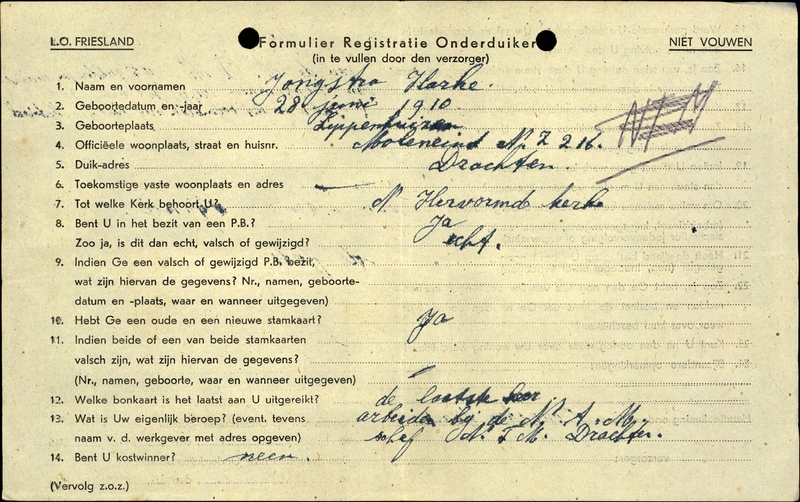 L.O. FRIESLAND
Formulier Registratie Onderduiker
NIET VOUWEN
(in te vullen door den verzorger)
1. Naam en voornamen Jongstra Harke.
2. Geboortedatum en -jaar 28 juni 1910
3. Geboorteplaats Lippenhuizen
4. Officiëele woonplaats, straat en huisnr. Moleneind N.Z 216.
5. Duik-adres Drachten.
6. Toekomstige vaste woonplaats en adres —
7. Tot welke Kerk behoort U? N. Hervormd kerk
8. Bent U in het bezit van een P.B.? Ja
Zoo ja, is dit dan echt, valsch of gewijzigd? echt.
9. Indien Ge een valsch of gewijzigd P.B. bezit,
wat zijn hiervan de gegevens? Nr., namen, geboorte-
datum en -plaats, waar en wanneer uitgegeven)
10. Hebt Ge een oude en een nieuwe stamkaart? Ja
11. Indien beide of een van beide stamkaarten
valsch zijn, wat zijn hiervan de gegevens?
(Nr., namen, geboorte, waar en wanneer uitgegeven)
12. Welke bonkaart is het laatst aan U uitgereikt? de laatste
13. Wat is Uw eigenlijk beroep? (event. tevens arbeider bij de N.T.M.
naam v. d. werkgever met adres opgeven) chef N.T.M. Drachten.
14. Bent U kostwinner? neen.
(Vervolg z.o.z.)